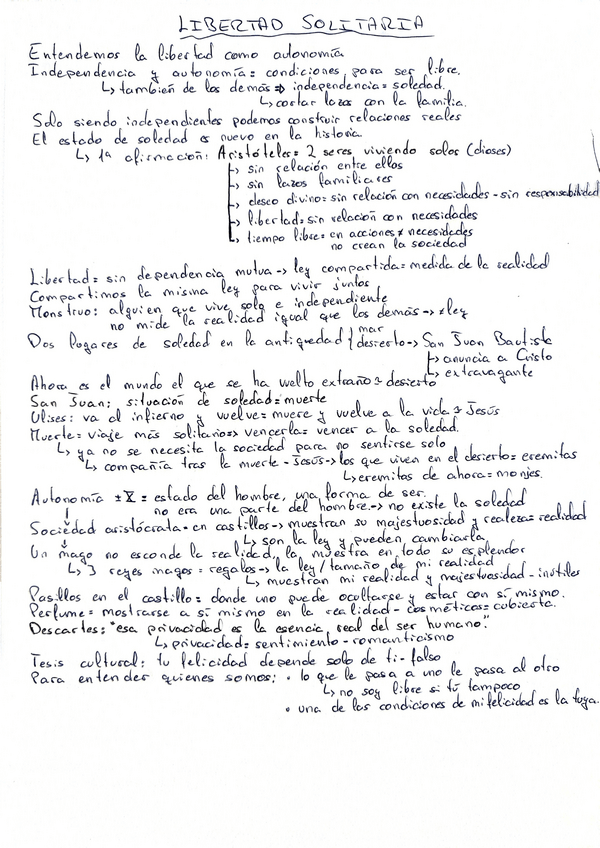 LIBERTAD SOLITARIA
Entendemos la libertad como autonomía
Independencia y autonomía = condiciones para ser libre.
↳ también de los demás ⇒ independencia = soledad.
↳ cortar lazos con la familia.
Solo siendo independientes podemos construir relaciones reales
El estado de soledad es nuevo en la historia.
↳ 1ª afirmación: Aristóteles = 2 seres viviendo solos (dioses)
↳ sin relación entre ellos
↳ sin lazos familiares
↳ deseo divino = sin relación con necesidades - sin responsabilidad
↳ libertad = sin relación con necesidades
↳ tiempo libre = en acciones ≠ necesidades
no crean la sociedad
Libertad = sin dependencia mutua -> ley compartida = medida de la realidad
Compartimos la misma ley para vivir juntos
Monstruo: alguien que vive solo e independiente
no mide la realidad igual que los demás -> ≠ ley
Dos lugares de soledad en la antigüedad { mar
desierto -> San Juan Bautista
↳ anuncia a Cristo
↳ extravagante
Ahora es el mundo el que se ha vuelto extraño = desierto
San Juan: situación de soledad = muerte
Ulises: va al infierno y vuelve = muere y vuelve a la vida = Jesús
Muerte = viaje más solitario => vencerla = vencer a la soledad.
↳ ya no se necesita la sociedad para no sentirse solo
↳ compañía tras la muerte - Jesús -> los que viven en el desierto = eremitas
↳ eremitas de ahora = monjes.
Autonomía ±X = estado del hombre, una forma de ser.
no era una parte del hombre. -> no existe la soledad
Sociedad aristócrata = en castillos -> muestran su majestuosidad y realeza = realidad
↳ son la ley y pueden cambiarla
Un mago no esconde la realidad, la muestra en todo su esplendor
↳ 3 reyes magos = regalos -> la ley / tamaño de mi realidad
↳ muestran mi realidad y majestuosidad - inútiles
Pasillos en el castillo = donde uno puede ocultarse y estar con sí mismo.
Perfume = mostrarse a sí mismo en la realidad - cosméticos = cubierta.
Descartes: "esa privacidad es la esencia real del ser humano."
↳ privacidad = sentimiento - romanticismo
Tesis cultural: tu felicidad depende solo de ti - falso
Para entender quienes somos: • lo que le pasa a uno le pasa al otro
↳ no soy libre si tú tampoco
• una de las condiciones de mi felicidad es la tuya.